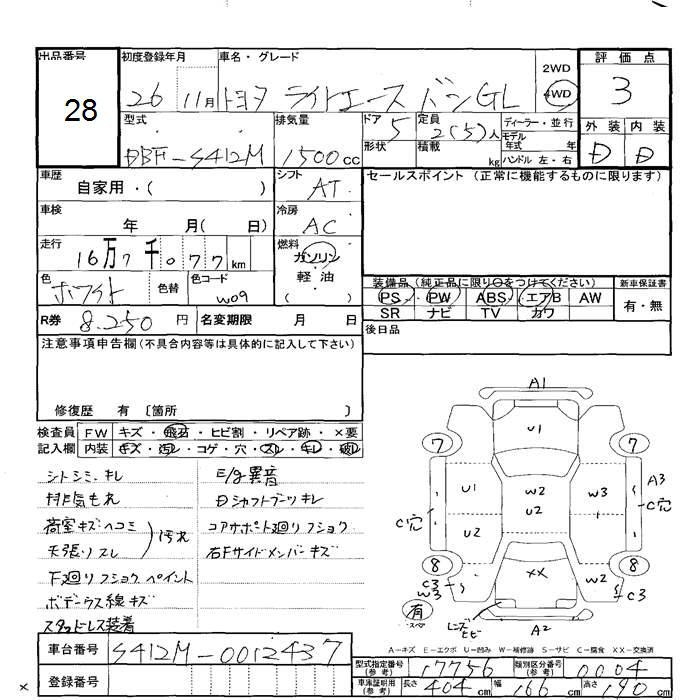 出品番号 初度登録年月 車名・グレード 2WD 評価点
28 26 11月 トヨタ ライトエース バンGL 4WD 3
型式 排気量 ドア 5 定員 2(5)人 ディーラー・並行 外装 内装
DBF-S412M 1500cc 形状 積載 kg モデル年式 年 D D
ハンドル 左・右
車歴 自家用・( ) シフト AT セールスポイント (正常に機能するものに限ります)
車検 年 月( 日) 冷房 AC
走行 16万7千077km 燃料 ガソリン
軽油
( )
色 ホワイト 色替 色コード W09
装備品(純正品に限り○をつけてください) 新車保証書
PS PW ABS エアB AW 有・無
SR ナビ TV カワ
R券 8.250円 名変期限 月 日 後日品
注意事項申告欄(不具合内容等は具体的に記入して下さい)
修復歴 有 〔箇所 〕
検査員 FW キズ・飛石・ヒビ割・リペア跡・×要
記入欄 内装 キズ・汚レ・コゲ・穴・スレ・キレ・
シトシミ.キレ E/g異音
排気もれ Dシャフトブーツキレ
荷室キズヘコミ 汚れ コアサポート廻りフショク
天張りスレ 右Fサイドメンバーキズ
下廻りフショクペイント
ボデーウス線キズ
スタッドレス装着
A1
U1
7 7
U1 W2 U2 W3 A3
C穴 U2 C穴
8 8
C3 W3 XX W2 C3
有 スペア レンズヒビ A2
A－キズ E－エクボ U－凹み W－補修跡 S－サビ C－腐食 XX－交換済
車台番号 S412M-0012437
登録番号
型式指定番号(参考) 17756 類別区分番号(参考) 0004
車庫証明用(参考) 長さ 404cm 幅 166cm 高さ 190cm
×